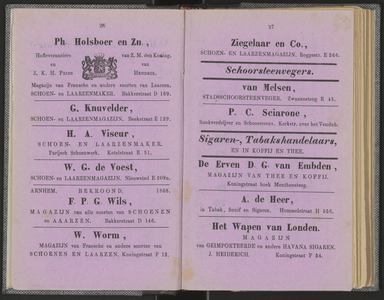 26
Ph. Holsboer en Zn.,
Hofleveranciers van Z. M. den Koning,
en van
Z. K. H. Prins HENDRIK.
Magazijn van Fransche en andere soorten van Laarzen,
SCHOEN- EN LAARZENMAKER. Bakkerstraat D 169.
G. Knuvelder,
SCHOEN- EN LAARZENMAGAZIJN, Beekstraat E 129.
H. A. Viseur,
SCHOEN- EN LAARZENMAKER.
Parijsch Schoenwerk, Ketelstraat E 51.
W. G. de Voest,
SCHOEN- en LAARZENMAGAZIJN, Nieuwstad E
ARNHEM. BEKROOND. 1868.
F. P. G. Wils,
MAGAZIJN van alle soorten van SCHOENEN
en LAARZEN. Bakkerstraat D 146.
W. Worm,
MAGAZIJN van Fransche en andere soorten van
SCHOENEN EN LAARZEN, Koningstraat F 12.
27
Ziegelaar en Co.,
SCHOEN- EN LAARZENMAGAZIJN, Roggestr. E 366.
Schoorsteenvegers.
van Melsen,
STADSSCHOORSTEENVEGER, Zwanensteeg E 45.
P. C. Sciarone,
Rookverdrijver en Schoorsteenv. Kerkstr. over het Vendah.
Sigaren-, Tabakshandelaars,
EN IN KOFFIJ EN THEE.
De Erven D. G. van Embden,
MAGAZIJN VAN THEE EN KOFFIJ.
Koningstraat hoek Menthensteeg.
A. de Heer,
in Tabak, Snuif en Sigaren. Hommelstraat H 156.
Het Wapen van Londen.
MAGAZIJN
van GEIMPORTEERDE en andere HAVANA SIGAREN.
J. HEIDERICH. Koningstraat F 54.